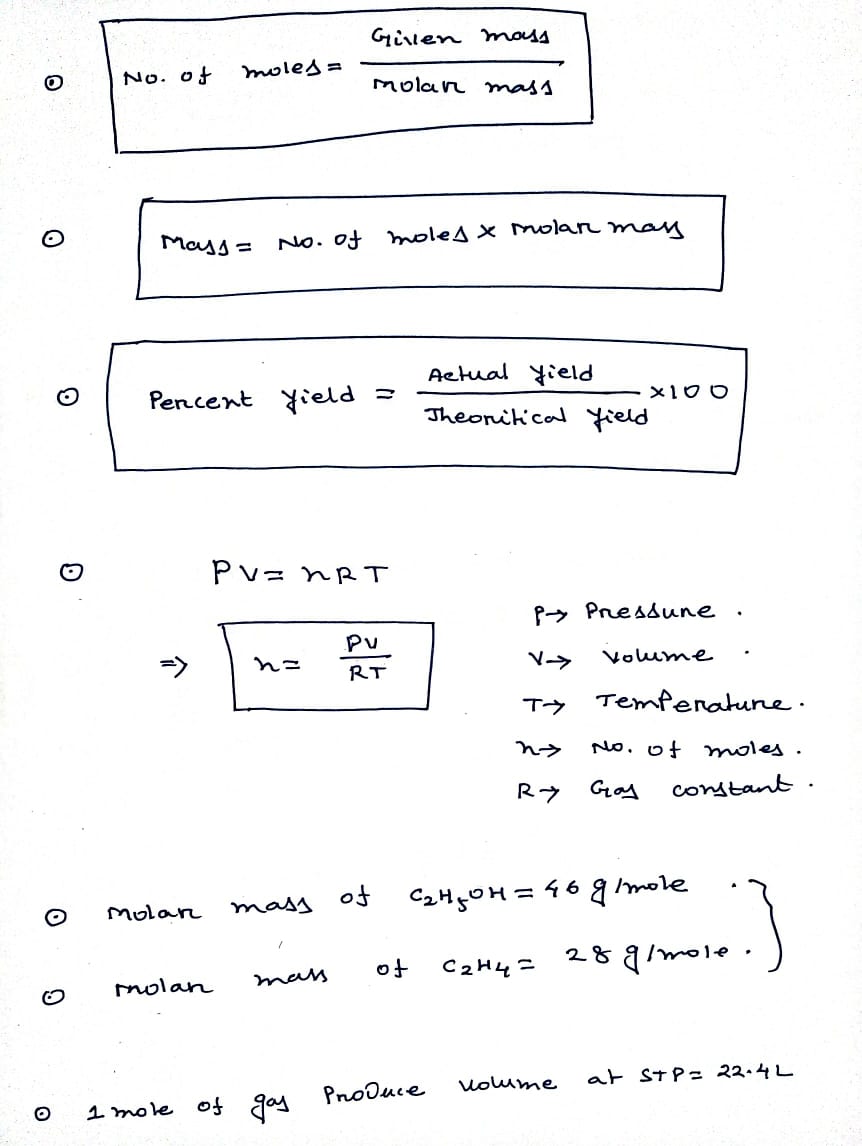 Given mass
No. of moles =
molar mass
Mass = No. of moles x molar mass
Actual Yield
Percent Yield = x100
Theoritical Yield
PV = nRT
P→ Pressure .
PV
⇒ n =
RT
V→ Volume .
T→ Temperature .
n→ No. of moles .
R→ Gas constant .
molar mass of C2H5OH = 46 g/mole .
molar mass of C2H4 = 28 g/mole .
1 mole of gas Produce volume at STP = 22.4L